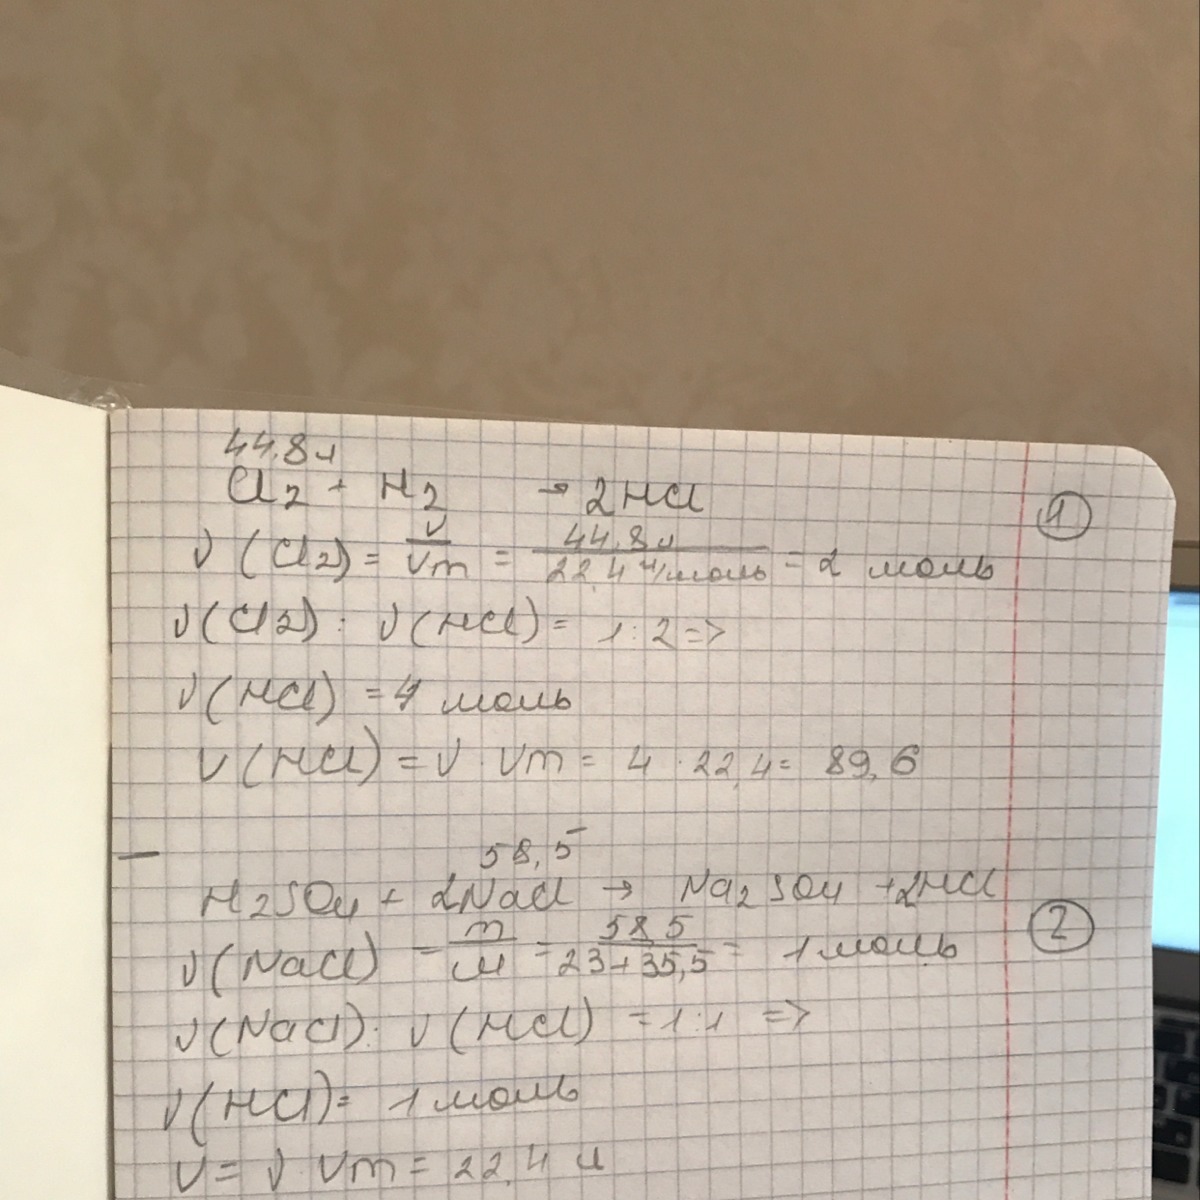 44,8 л
Cl2 + H2 → 2HCl
①
ν (Cl2) = V/Vm = 44,8 л/22,4 л/моль = 2 моль
ν(Cl2) : ν(HCl) = 1:2 =>
ν(HCl) = 4 моль
V(HCl) = ν · Vm = 4 · 22,4 = 89,6
58,5
H2SO4 + 2NaCl → Na2SO4 + 2HCl
②
ν(NaCl) = m/M = 58,5/23+35,5 = 1 моль
ν(NaCl) : ν(HCl) = 1:1 =>
ν(HCl) = 1 моль
V = ν · Vm = 22,4 л